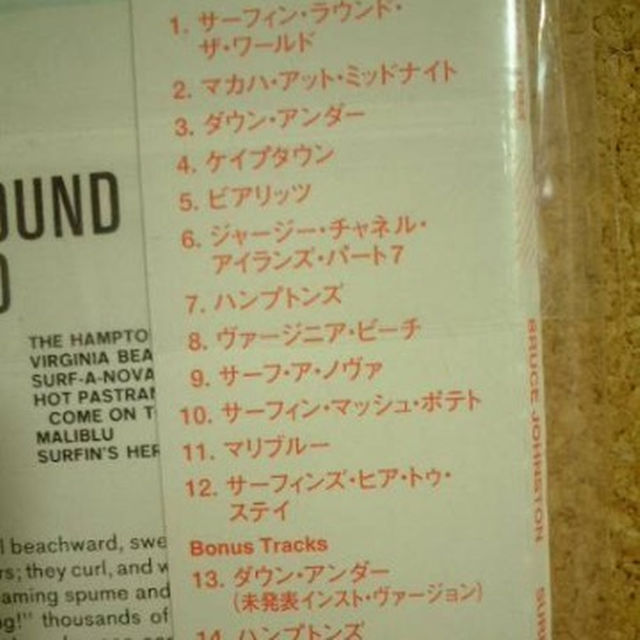 1. サーフィン・ラウンド・
ザ・ワールド
2. マカハ・アット・ミッドナイト
3. ダウン・アンダー
4. ケイプタウン
5. ビアリッツ
6. ジャージー・チャネル・
アイランズ・パート7
7. ハンプトンズ
8. ヴァージニア・ビーチ
9. サーフ・ア・ノヴァ
10. サーフィン・マッシュ・ポテト
11. マリブルー
12. サーフィンズ・ヒア・トゥ・
ステイ
Bonus Tracks
13. ダウン・アンダー
(未発表インスト・ヴァージョン)
14. ハンプトンズ
OUND
THE HAMPTO
VIRGINIA BEA
SURF-A-NOVA
HOT PASTRAM
COME ON T
MALIBLU
SURFIN'S HER
l beachward, swe
rs; they curl, and w
aming spume and
g!" thousands of
BRUCE JOHNSTON
SUR